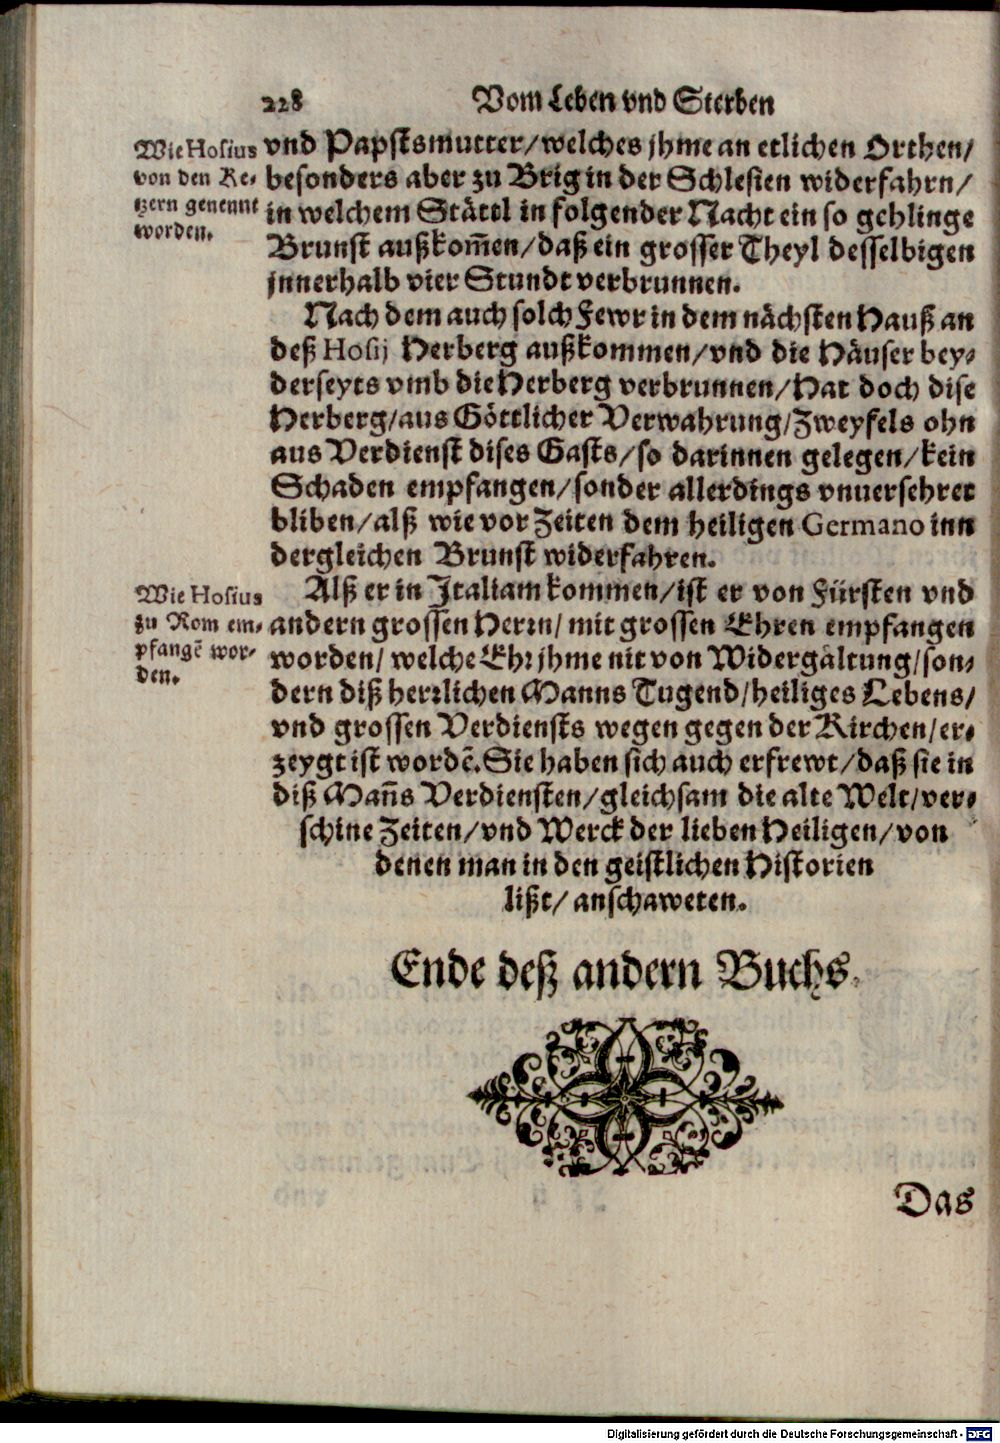 228 Vom Leben vnd Sterben
Wie Hosius
von den Ke-
tzern genennt
worden.
vnd Papstsmutter/welches jhme an etlichen Orthen/
besonders aber zu Brig in der Schlesien widerfahrn/
in welchem Stättl in folgender Nacht ein so gehlinge
Brunst außkom̃en/daß ein grosser Theyl desselbigen
jnnerhalb vier Stundt verbrunnen.
Nach dem auch solch Fewr in dem nächsten Hauß an
deß Hosij Herberg außkommen/vnd die Häuser bey-
derseyts vmb die Herberg verbrunnen/Hat doch dise
Herberg/aus Göttlicher Verwahrung/Zweyfels ohn
aus Verdienst dises Gasts/so darinnen gelegen/kein
Schaden empfangen/sonder allerdings vnuersehret
bliben/alß wie vor Zeiten dem heiligen Germano inn
dergleichen Brunst widerfahren.
Wie Hosius
zu Rom em-
pfangẽ wor-
den.
Alß er in Italiam kommen/ist er von Fürsten vnd
andern grossen Herꝛn/ mit grossen Ehren empfangen
worden/ welche Ehꝛ jhme nit von Widergältung/son-
dern diß herꝛlichen Manns Tugend/heiliges Lebens/
vnd grossen Verdiensts wegen gegen der Kirchen/er-
zeygt ist wordẽ. Sie haben sich auch erfrewt/daß sie in
diß Mañs Verdiensten/gleichsam die alte Welt/ver-
schine Zeiten/vnd Werck der lieben Heiligen/von
denen man in den geistlichen Historien
lißt/ anschaweten.
Ende deß andern Buchs.
Das
Digitalisierung gefördert durch die Deutsche Forschungsgemeinschaft - DFG